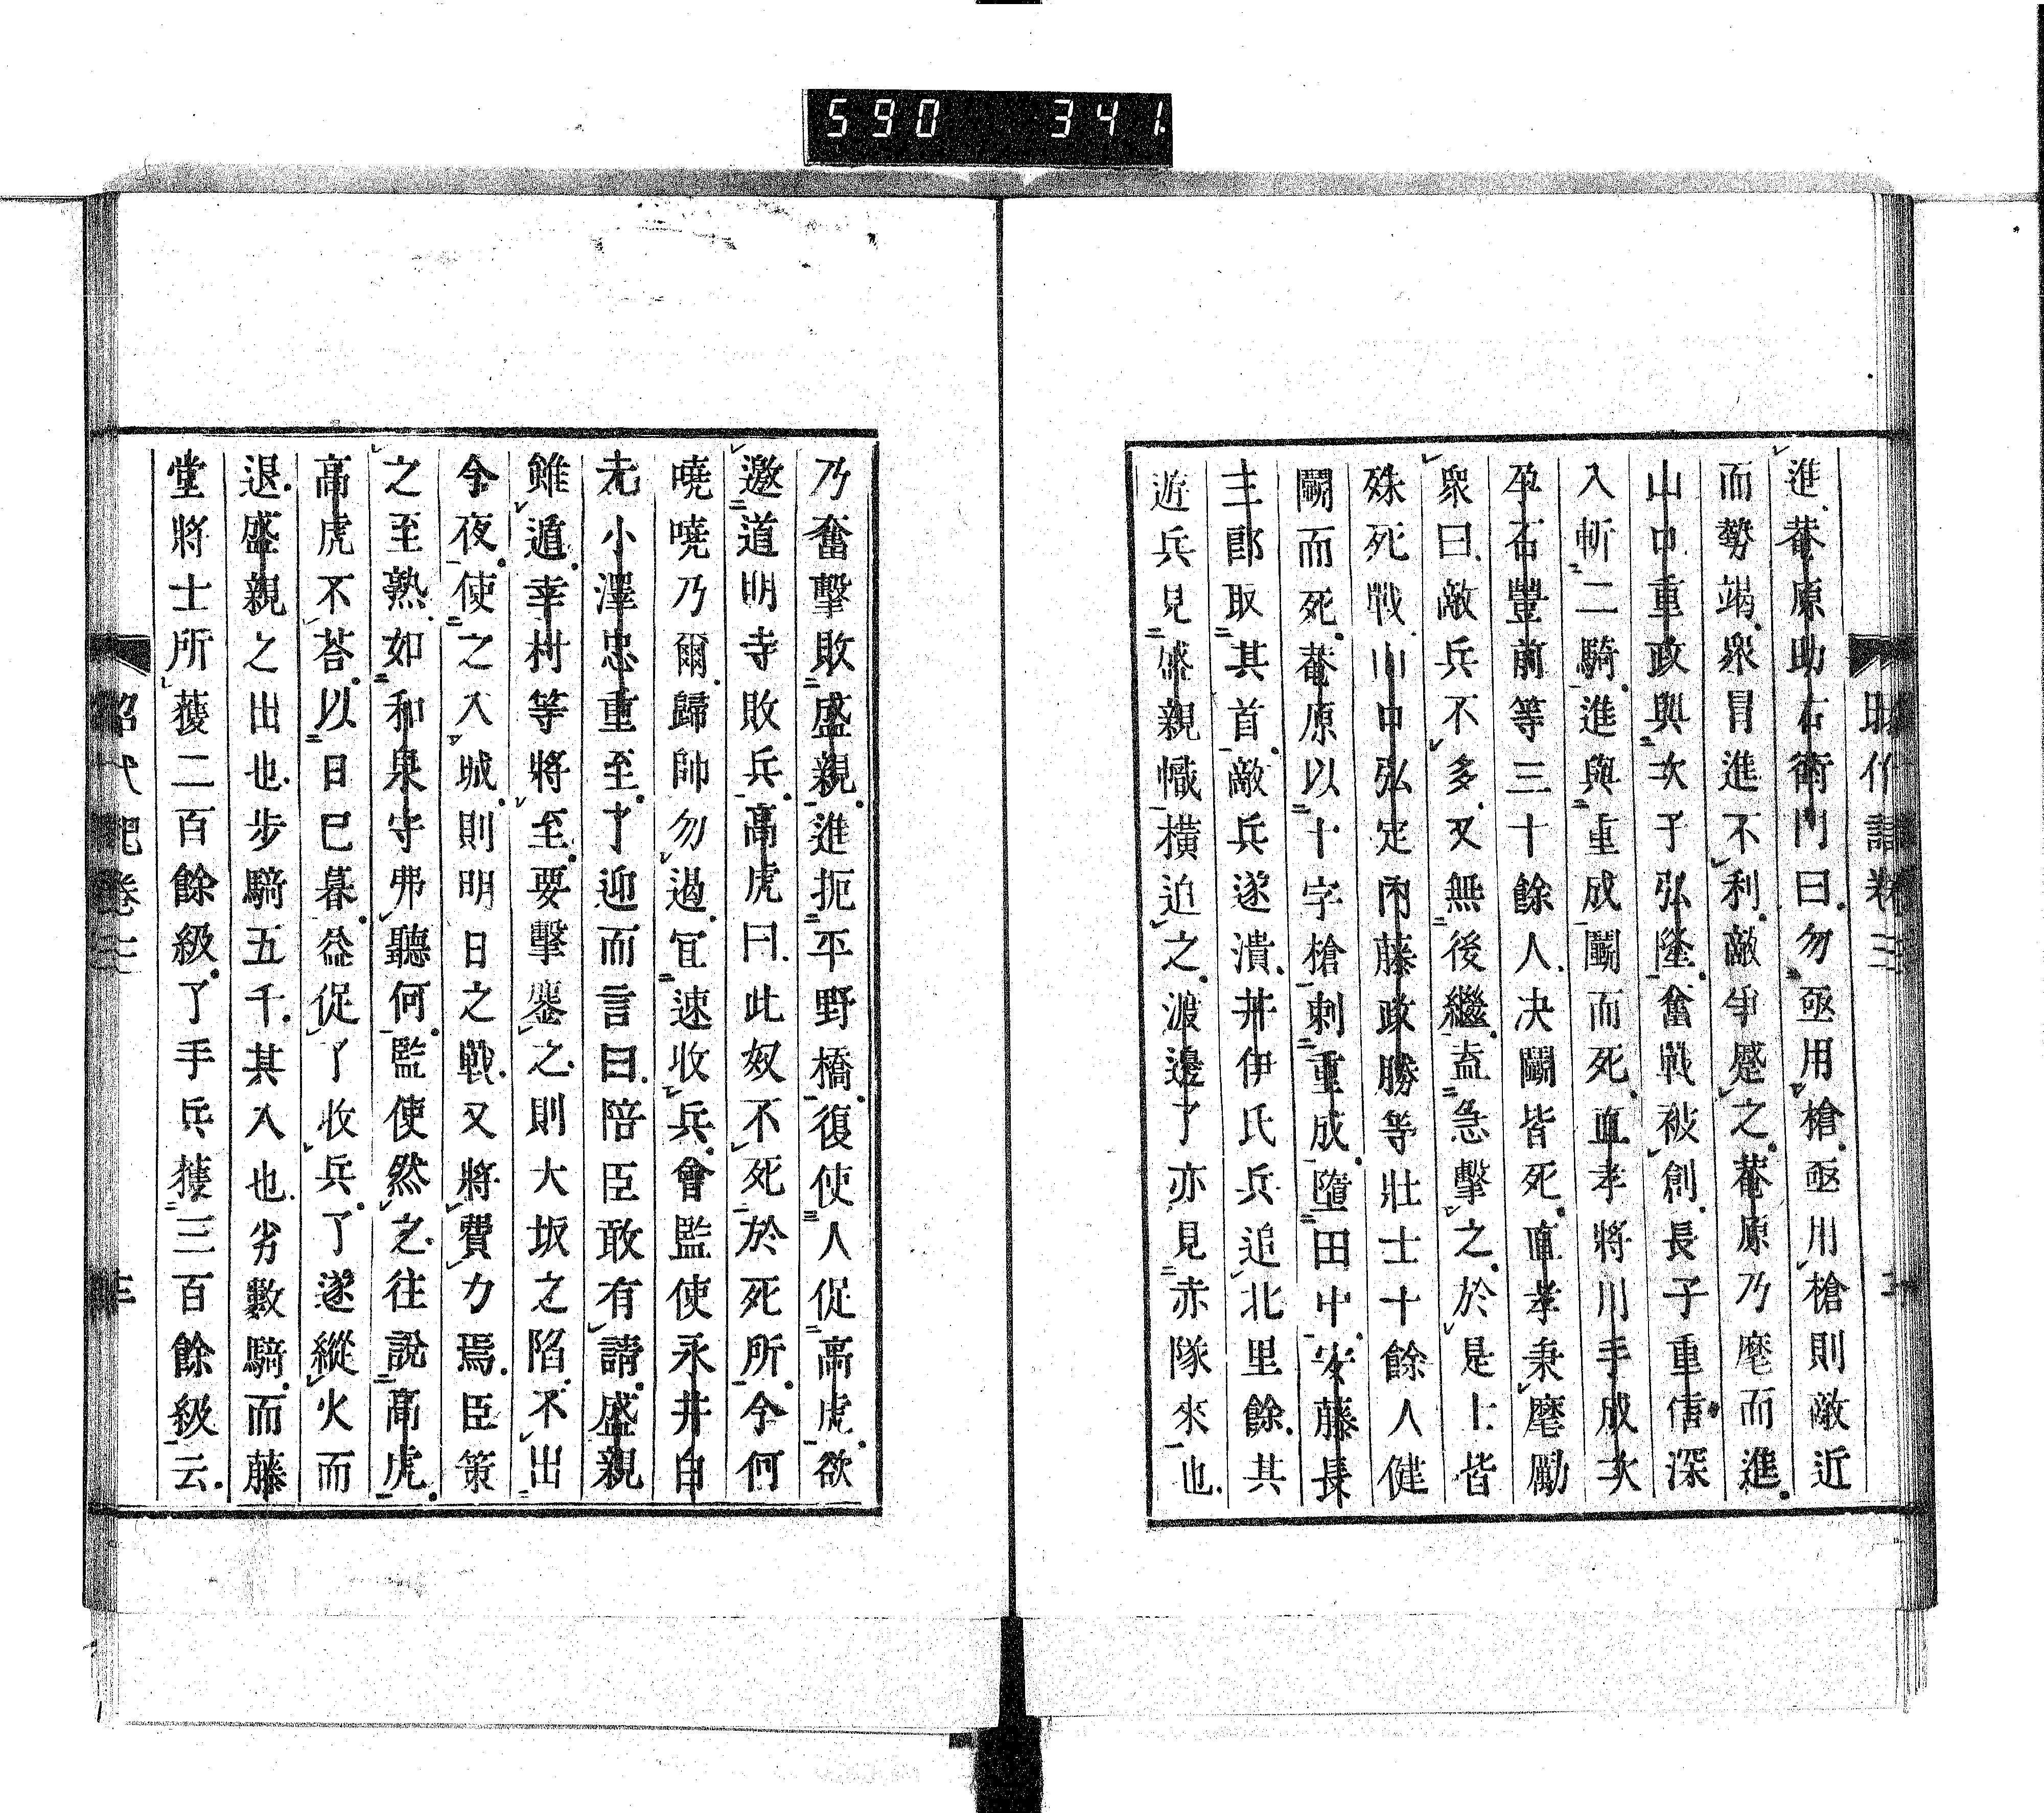 590 341
進菴原助右衛門曰勿亟用槍亟用槍則敵近
而勢竭衆冒進不利敵爭蹙之菴原乃麾而進
山中重政與次子弘隆奮戰被創長子重信深
入斬二騎進與重成鬬而死直孝將川手成次
孕石豐前等三十餘人決鬬皆死直孝秉麾勵
衆曰敵兵不多又無後繼盍急擊之於是士皆
殊死戰山中弘定內藤政勝等壯士十餘人健
鬬而死菴原以十字槍刺重成墮田中安藤長
三郎取其首敵兵遂潰井伊氏兵追北里餘其
遊兵見盛親幟橫迫之渡邊了亦見赤隊來也
乃奮擊敗盛親進扼平野橋復使人促高虎欲
邀道明寺敗兵高虎曰此奴不死於死所今何
嘵嘵乃爾歸帥勿遏宜速收兵會監使永井白
元小澤忠重至了迎而言曰陪臣敢有請盛親
雖遁幸村等將至要擊鏖之則大坂之陷不出
今夜使之入城則明日之戰又將費力焉臣策
之至熟如和泉守弗聽何監使然之往說高虎
高虎不荅以日已暮益促了收兵了遂縱火而
退盛親之出也步騎五千其入也劣數騎而藤
堂將士所獲二百餘級了手兵獲三百餘級云
昭代記卷三